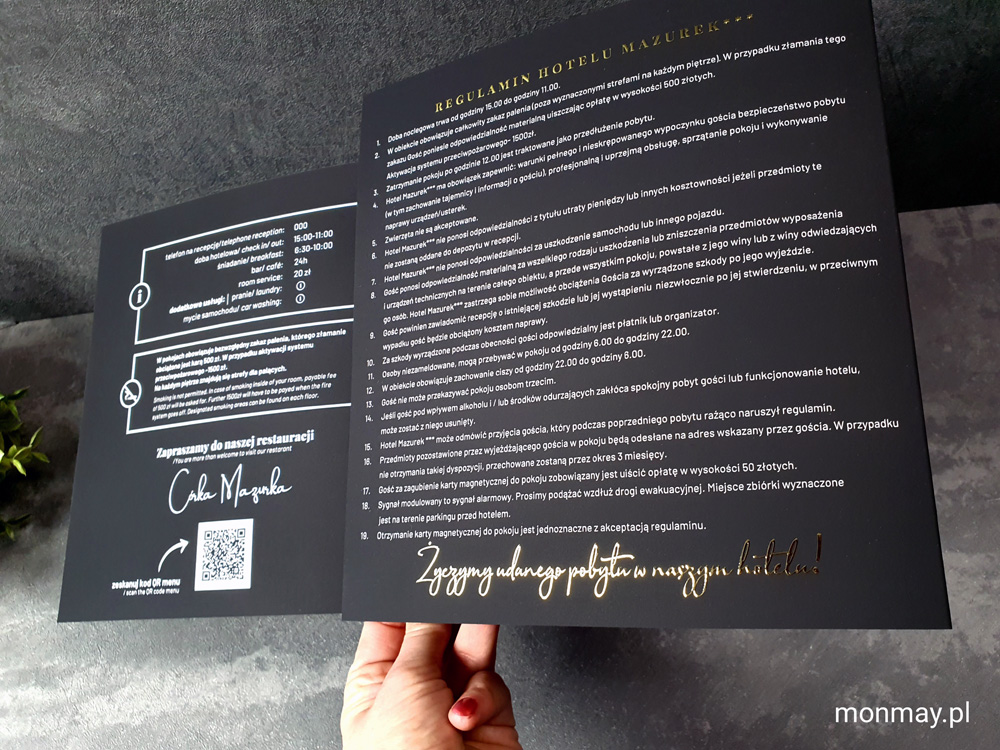 telefon na recepcję/telephone reception: 000
doba hotelowa/ check in/ out: 15:00-11:00
śniadanie/ breakfast: 6:30-10:00
bar/ café: 24h
room service: 20 zł
dodatkowe usługi: | pranie/ laundry:
mycie samochodu/ car washing:
W pokojach obowiązuje bezwzględny zakaz palenia, którego złamanie
obciążone jest karą 500 zł. W przypadku aktywacji systemu
przeciwpożarowego -1500 zł.
Na każdym piętrze znajdują się strefy dla palących.
Smoking is not permitted. In case of smoking inside of your room, payable fee
of 500 zł will be asked for. Further 1500zł will have to be payed when the fire
system goes off. Designated smoking areas can be found on each floor.
Zapraszamy do naszej restauracji
/You are more than welcome to visit our restorant
Córka Mazurka
zeskanuj kod QR menu
/ scan the QR code menu
REGULAMIN HOTELU MAZUREK***
1. Doba noclegowa trwa od godziny 15.00 do godziny 11.00.
2. W obiekcie obowiązuje całkowity zakaz palenia (poza wyznaczonymi strefami na każdym piętrze). W przypadku złamania tego
zakazu Gość poniesie odpowiedzialność materialną uiszczając opłatę w wysokości 500 złotych.
Aktywacja systemu przeciwpożarowego- 1500zł.
3. Zatrzymanie pokoju po godzinie 12.00 jest traktowane jako przedłużenie pobytu.
4. Hotel Mazurek*** ma obowiązek zapewnić: warunki pełnego i nieskrępowanego wypoczynku gościa bezpieczeństwo pobytu
(w tym zachowanie tajemnicy i informacji o gościu), profesjonalną i uprzejmą obsługę, sprzątanie pokoju i wykonywanie
naprawy urządzeń/usterek.
5. Zwierzęta nie są akceptowane.
6. Hotel Mazurek*** nie ponosi odpowiedzialności z tytułu utraty pieniędzy lub innych kosztowności jeżeli przedmioty te
nie zostaną oddane do depozytu w recepcji.
7. Hotel Mazurek*** nie ponosi odpowiedzialności za uszkodzenie samochodu lub innego pojazdu.
8. Gość ponosi odpowiedzialność materialną za wszelkiego rodzaju uszkodzenia lub zniszczenia przedmiotów wyposażenia
i urządzeń technicznych na terenie całego obiektu, a przede wszystkim pokoju, powstałe z jego winy lub z winy odwiedzających
go osób. Hotel Mazurek*** zastrzega sobie możliwość obciążenia Gościa za wyrządzone szkody po jego wyjeździe.
9. Gość powinien zawiadomić recepcję o istniejącej szkodzie lub jej wystąpieniu niezwłocznie po jej stwierdzeniu, w przeciwnym
wypadku gość będzie obciążony kosztem naprawy.
10. Za szkody wyrządzone podczas obecności gości odpowiedzialny jest płatnik lub organizator.
11. Osoby niezameldowane, mogą przebywać w pokoju od godziny 6.00 do godziny 22.00.
12. W obiekcie obowiązuje zachowanie ciszy od godziny 22.00 do godziny 6.00.
13. Gość nie może przekazywać pokoju osobom trzecim.
14. Jeśli gość pod wpływem alkoholu i / lub środków odurzających zakłóca spokojny pobyt gości lub funkcjonowanie hotelu,
może zostać z niego usunięty.
15. Hotel Mazurek *** może odmówić przyjęcia gościa, który podczas poprzedniego pobytu rażąco naruszył regulamin.
16. Przedmioty pozostawione przez wyjeżdżającego gościa w pokoju będą odesłane na adres wskazany przez gościa. W przypadku
nie otrzymania takiej dyspozycji, przechowane zostaną przez okres 3 miesięcy.
17. Gość za zagubienie karty magnetycznej do pokoju zobowiązany jest uiścić opłatę w wysokości 50 złotych.
18. Sygnał modulowany to sygnał alarmowy. Prosimy podążać wzdłuż drogi ewakuacyjnej. Miejsce zbiórki wyznaczone
jest na terenie parkingu przed hotelem.
19. Otrzymanie karty magnetycznej do pokoju jest jednoznaczne z akceptacją regulaminu.
Życzymy udanego pobytu w naszym hotelu!
monmay.pl